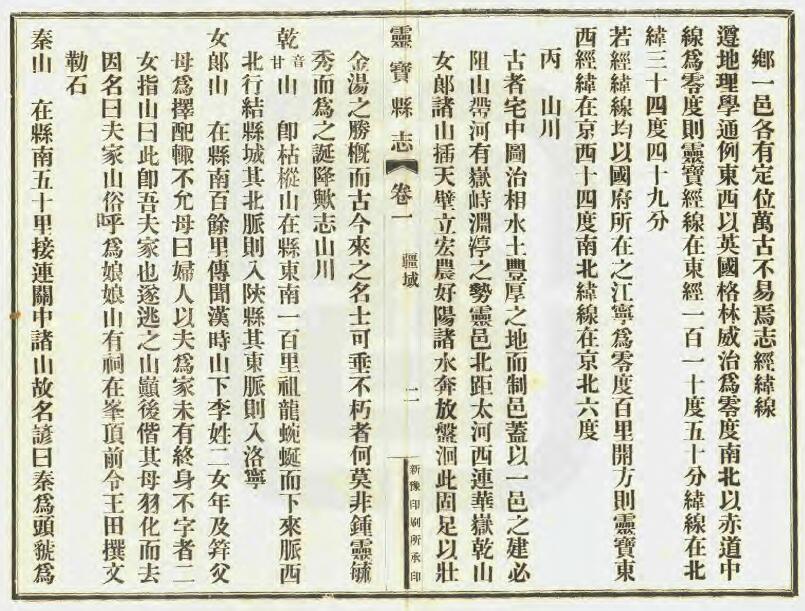 鄉一邑各有定位萬古不易焉志經緯線
遵地理學通例東西以英國格林威治爲零度南北以赤道中
線爲零度則靈寶經線在東經一百一十度五十分緯線在北
緯三十四度四十九分
若經緯線均以國府所在之江寧爲零度百里開方則靈寶東
西經緯在京西十四度南北緯線在京北六度
丙　山川
古者宅中圖治相水土豐厚之地而制邑蓋以一邑之建必
阻山帶河有嶽峙淵渟之勢靈邑北距太河西連華嶽乾山
女郎諸山插天壁立宏農好陽諸水奔放盤洄此固足以壯
靈寶縣志　卷一　疆域　二　新豫印刷所承印
金湯之勝槪而古今來之名士可垂不朽者何莫非鍾靈毓
秀而爲之誕降歟志山川
乾音甘山　卽枯樅山在縣東南一百里祖龍蜿蜒而下來脈西
北行結縣城其北脈則入陜縣其東脈則入洛寧
女郎山　在縣南百餘里傳聞漢時山下李姓二女年及笄父
母爲擇配輙不允母曰婦人以夫爲家未有終身不字者二
女指山曰此卽吾夫家也遂逃之山巓後偕其母羽化而去
因名曰夫家山俗呼爲娘娘山有祠在峯頂前令王田撰文
勒石
秦山　在縣南五十里接連關中諸山故名諺曰秦爲頭虢爲